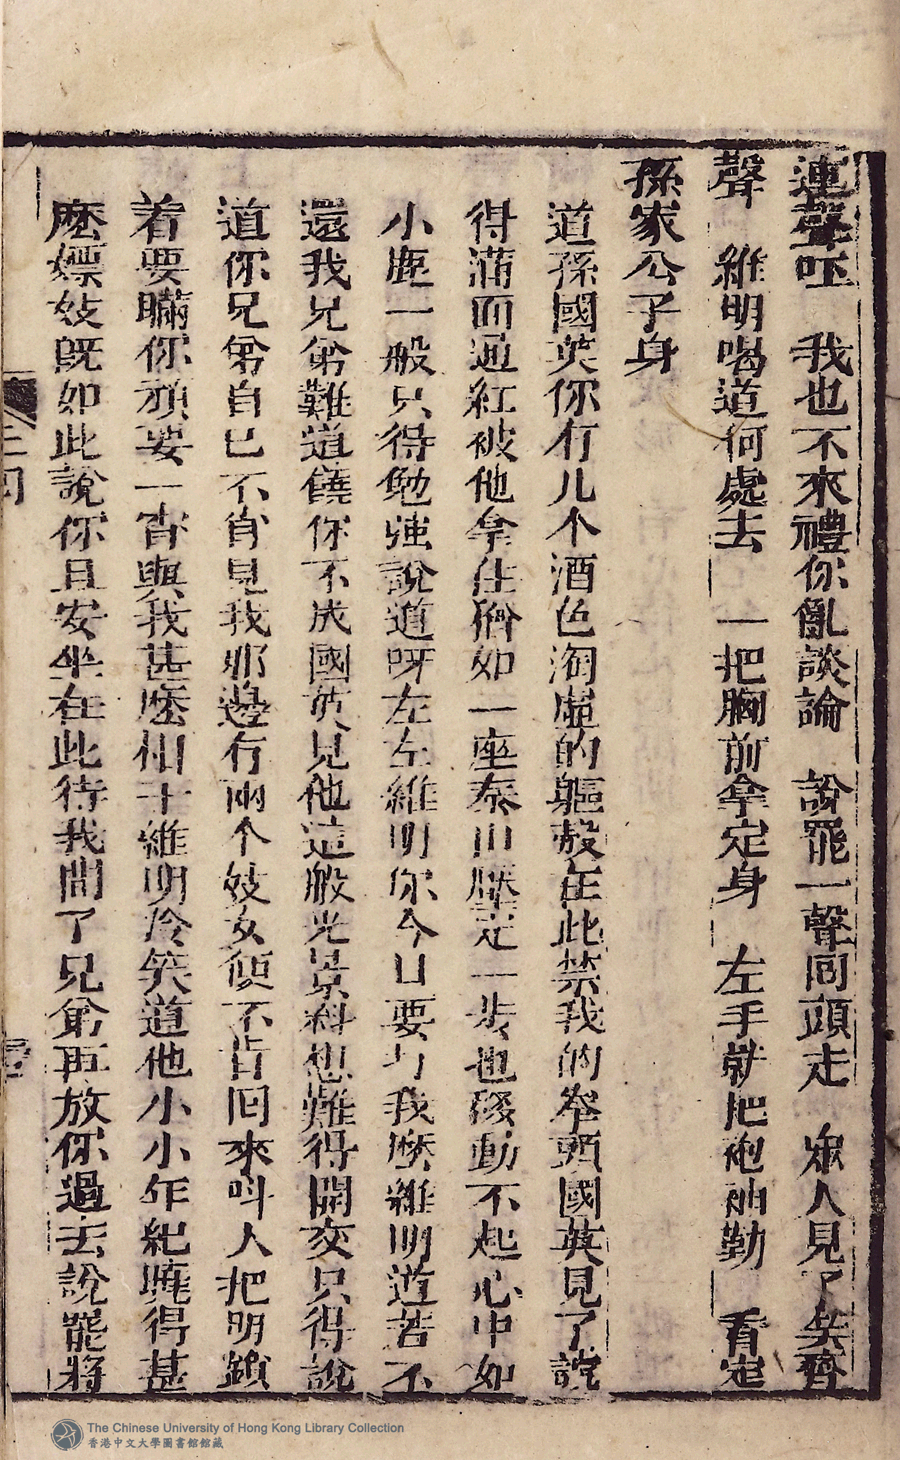 連聲呸　我也不來禮你亂談論　說罷一聲回頭走　衆人見了笑齊
聲　維明喝道何處去　一把胸前拿定身　左手就把袍袖勒　看定
孫家公子身
道孫國英你有几个酒色淘虛的軀殼在此禁我的拳頭國英見了說
得滿面通紅被他拿住猶如一座泰山壓定一步也移動不起心中如
小鹿一般只得勉強說道呀左左維明你今日要打我麼維明道若不
還我兄弟難道饒你不成國英見他這般光景料想難得開交只得說
道你兄弟自己不肖見我那邊有兩个妓女便不肯囘來呌人把明鎖
着要瞞你頑耍一宵與我甚麽相干維明冷笑道他小小年紀曉得甚
麽嫖妓旣如此說你且安坐在此待我問了兄弟再放你過去說罷將
The Chinese University of Hong Kong Library Collection
香港中文大學圖書館館藏